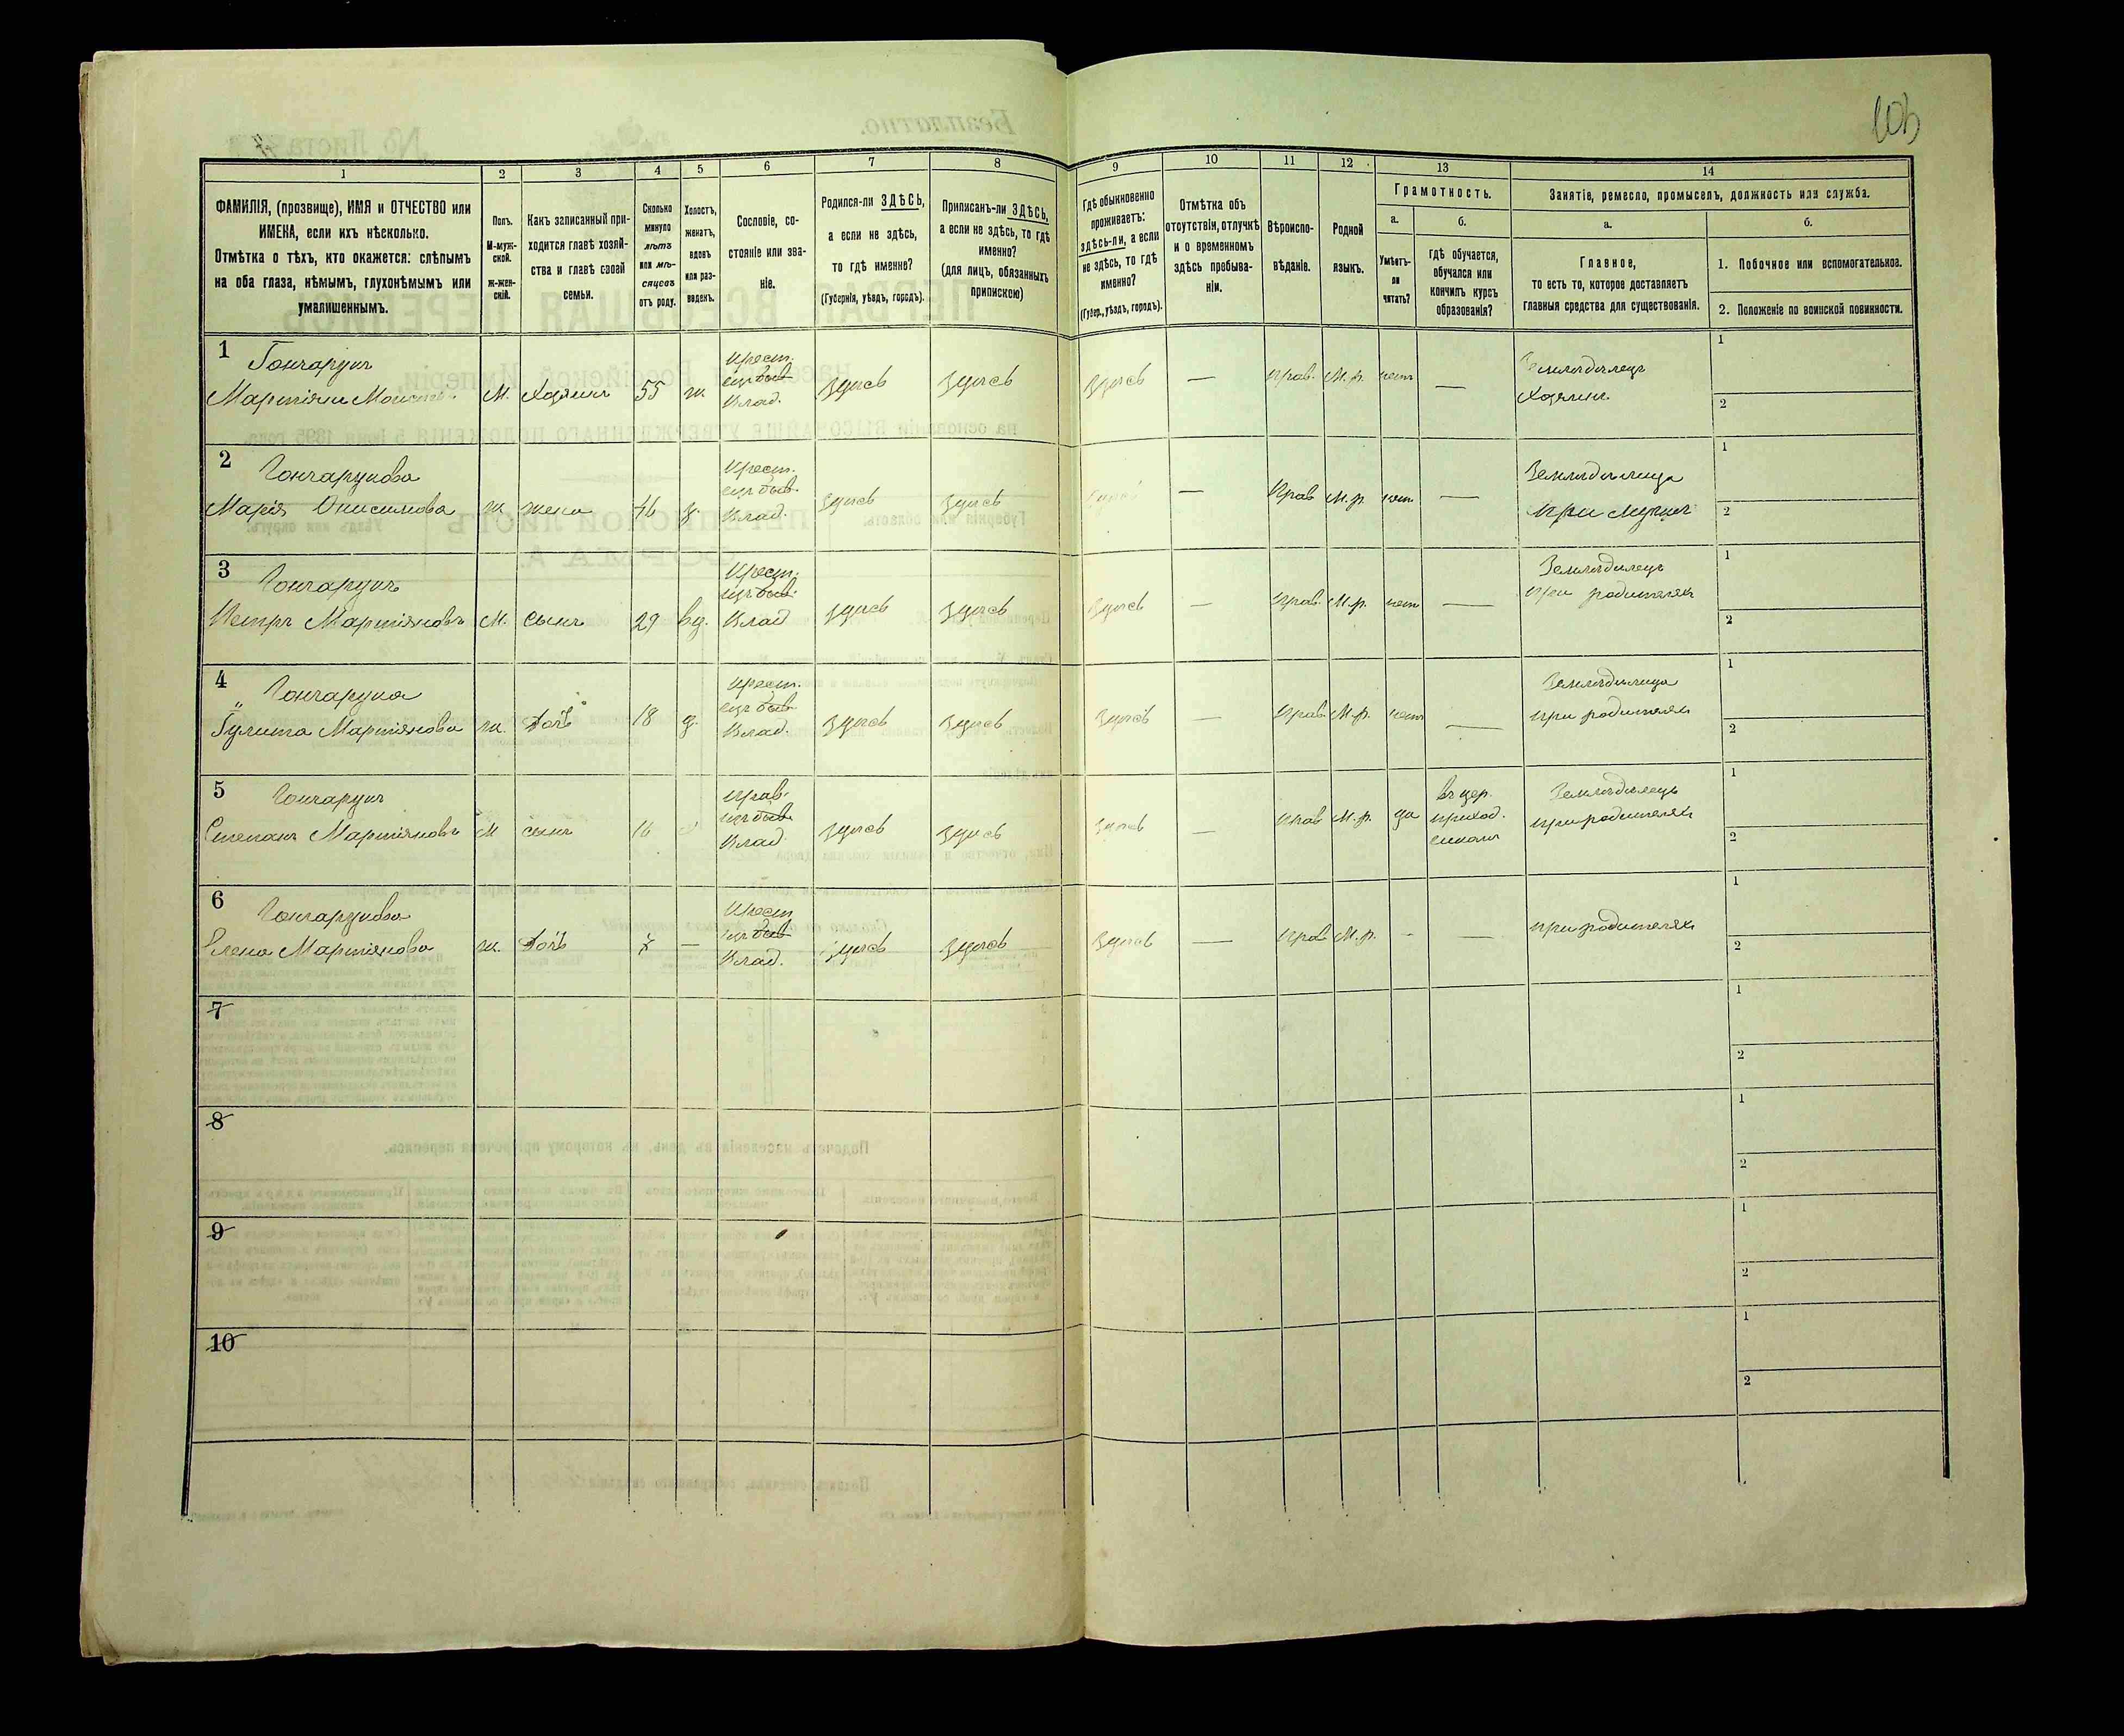 103
1
2
3
4
5
6
7
8
9
10
11
12
13
14
ФАМИЛІЯ, (прозвище), ИМЯ и ОТЧЕСТВО или
ИМЕНА, если ихъ нѣсколько.
Отмѣтка о тѣхъ, кто окажется: слѣпымъ
на оба глаза, нѣмымъ, глухонѣмымъ или
умалишеннымъ.
Полъ.
М-муж-
ской.
ж-жен-
скій.
Какъ записанный при-
ходится главѣ хозяй-
ства и главѣ своей
семьи.
Сколько
минуло
лѣтъ
или мѣ-
сяцевъ
отъ роду.
Холостъ,
женатъ,
вдовъ
или раз-
веденъ.
Сословіе, со-
стояніе или зва-
ніе.
Родился-ли ЗДѢСЬ,
а если не здѣсь,
то гдѣ именно?
(Губернія, уѣздъ, городъ).
Приписанъ-ли ЗДѢСЬ,
а если не здѣсь, то гдѣ
именно?
(для лицъ, обязанныхъ
припискою)
Гдѣ обыкновенно
проживаетъ:
здѣсь-ли, а если
не здѣсь, то гдѣ
именно?
(Губер., уѣздъ, городъ).
Отмѣтка объ
отсутствіи, отлучкѣ
и о временномъ
здѣсь пребыва-
ніи.
Вѣроиспо-
вѣданіе.
Родной
языкъ.
Грамотность.
а.
б.
Умѣетъ-
ли
читать?
Гдѣ обучается,
обучался или
кончилъ курсъ
образованія?
Занятіе, ремесло, промыселъ, должность или служба.
а.
б.
Главное,
то есть то, которое доставляетъ
главныя средства для существованія.
1. Побочное или вспомогательное.
2. Положеніе по воинской повинности.
1
Гончарукъ
Мартіянъ
М.
Хозяинъ
55
ж.
Крест.
изъ быв.
Влад.
здѣсь
здѣсь
здѣсь
—
прав.
М.р.
нетъ
—
Земледѣлецъ
Хозяинъ
1
2
2
Гончарукова
Марія Онисимова
ж.
жена
46
з.
Крест.
изъ быв.
Влад.
здѣсь
здѣсь
—
Прав
М.р.
нет
—
Земледѣлица
при мужѣ
1
2
3
Гончарукъ
Петръ Мартіяновъ
М.
сынъ
29
вд.
Крест.
изъ быв.
Влад
здѣсь
здѣсь
здѣсь
—
прав.
М.р.
нет
—
Земледѣлецъ
при родителях
1
2
4
Гончарука
Гулита Мартіянова
ж.
дочь
18
д.
Крест.
изъ быв.
Влад.
здѣсь
здѣсь
здѣсь
—
прав.
М.р.
нет
—
Земледѣлица
при родителях
1
2
5
Гончарукъ
Степанъ Мартіяновъ
М
сынъ
16
прав.
изъ быв.
Влад
здѣсь
здѣсь
здѣсь
—
прав
М.р.
да
въ цер.
приход.
школѣ
Земледѣлецъ
при родителях
1
2
6
Гончарукова
Елена Мартіянова
ж.
дочь
7
—
Крест
изъ быв
Влад.
здѣсь
здѣсь
здѣсь
—
прав
М.р.
-
—
при родителях
1
2
7
1
2
8
1
2
9
1
2
10
1
2